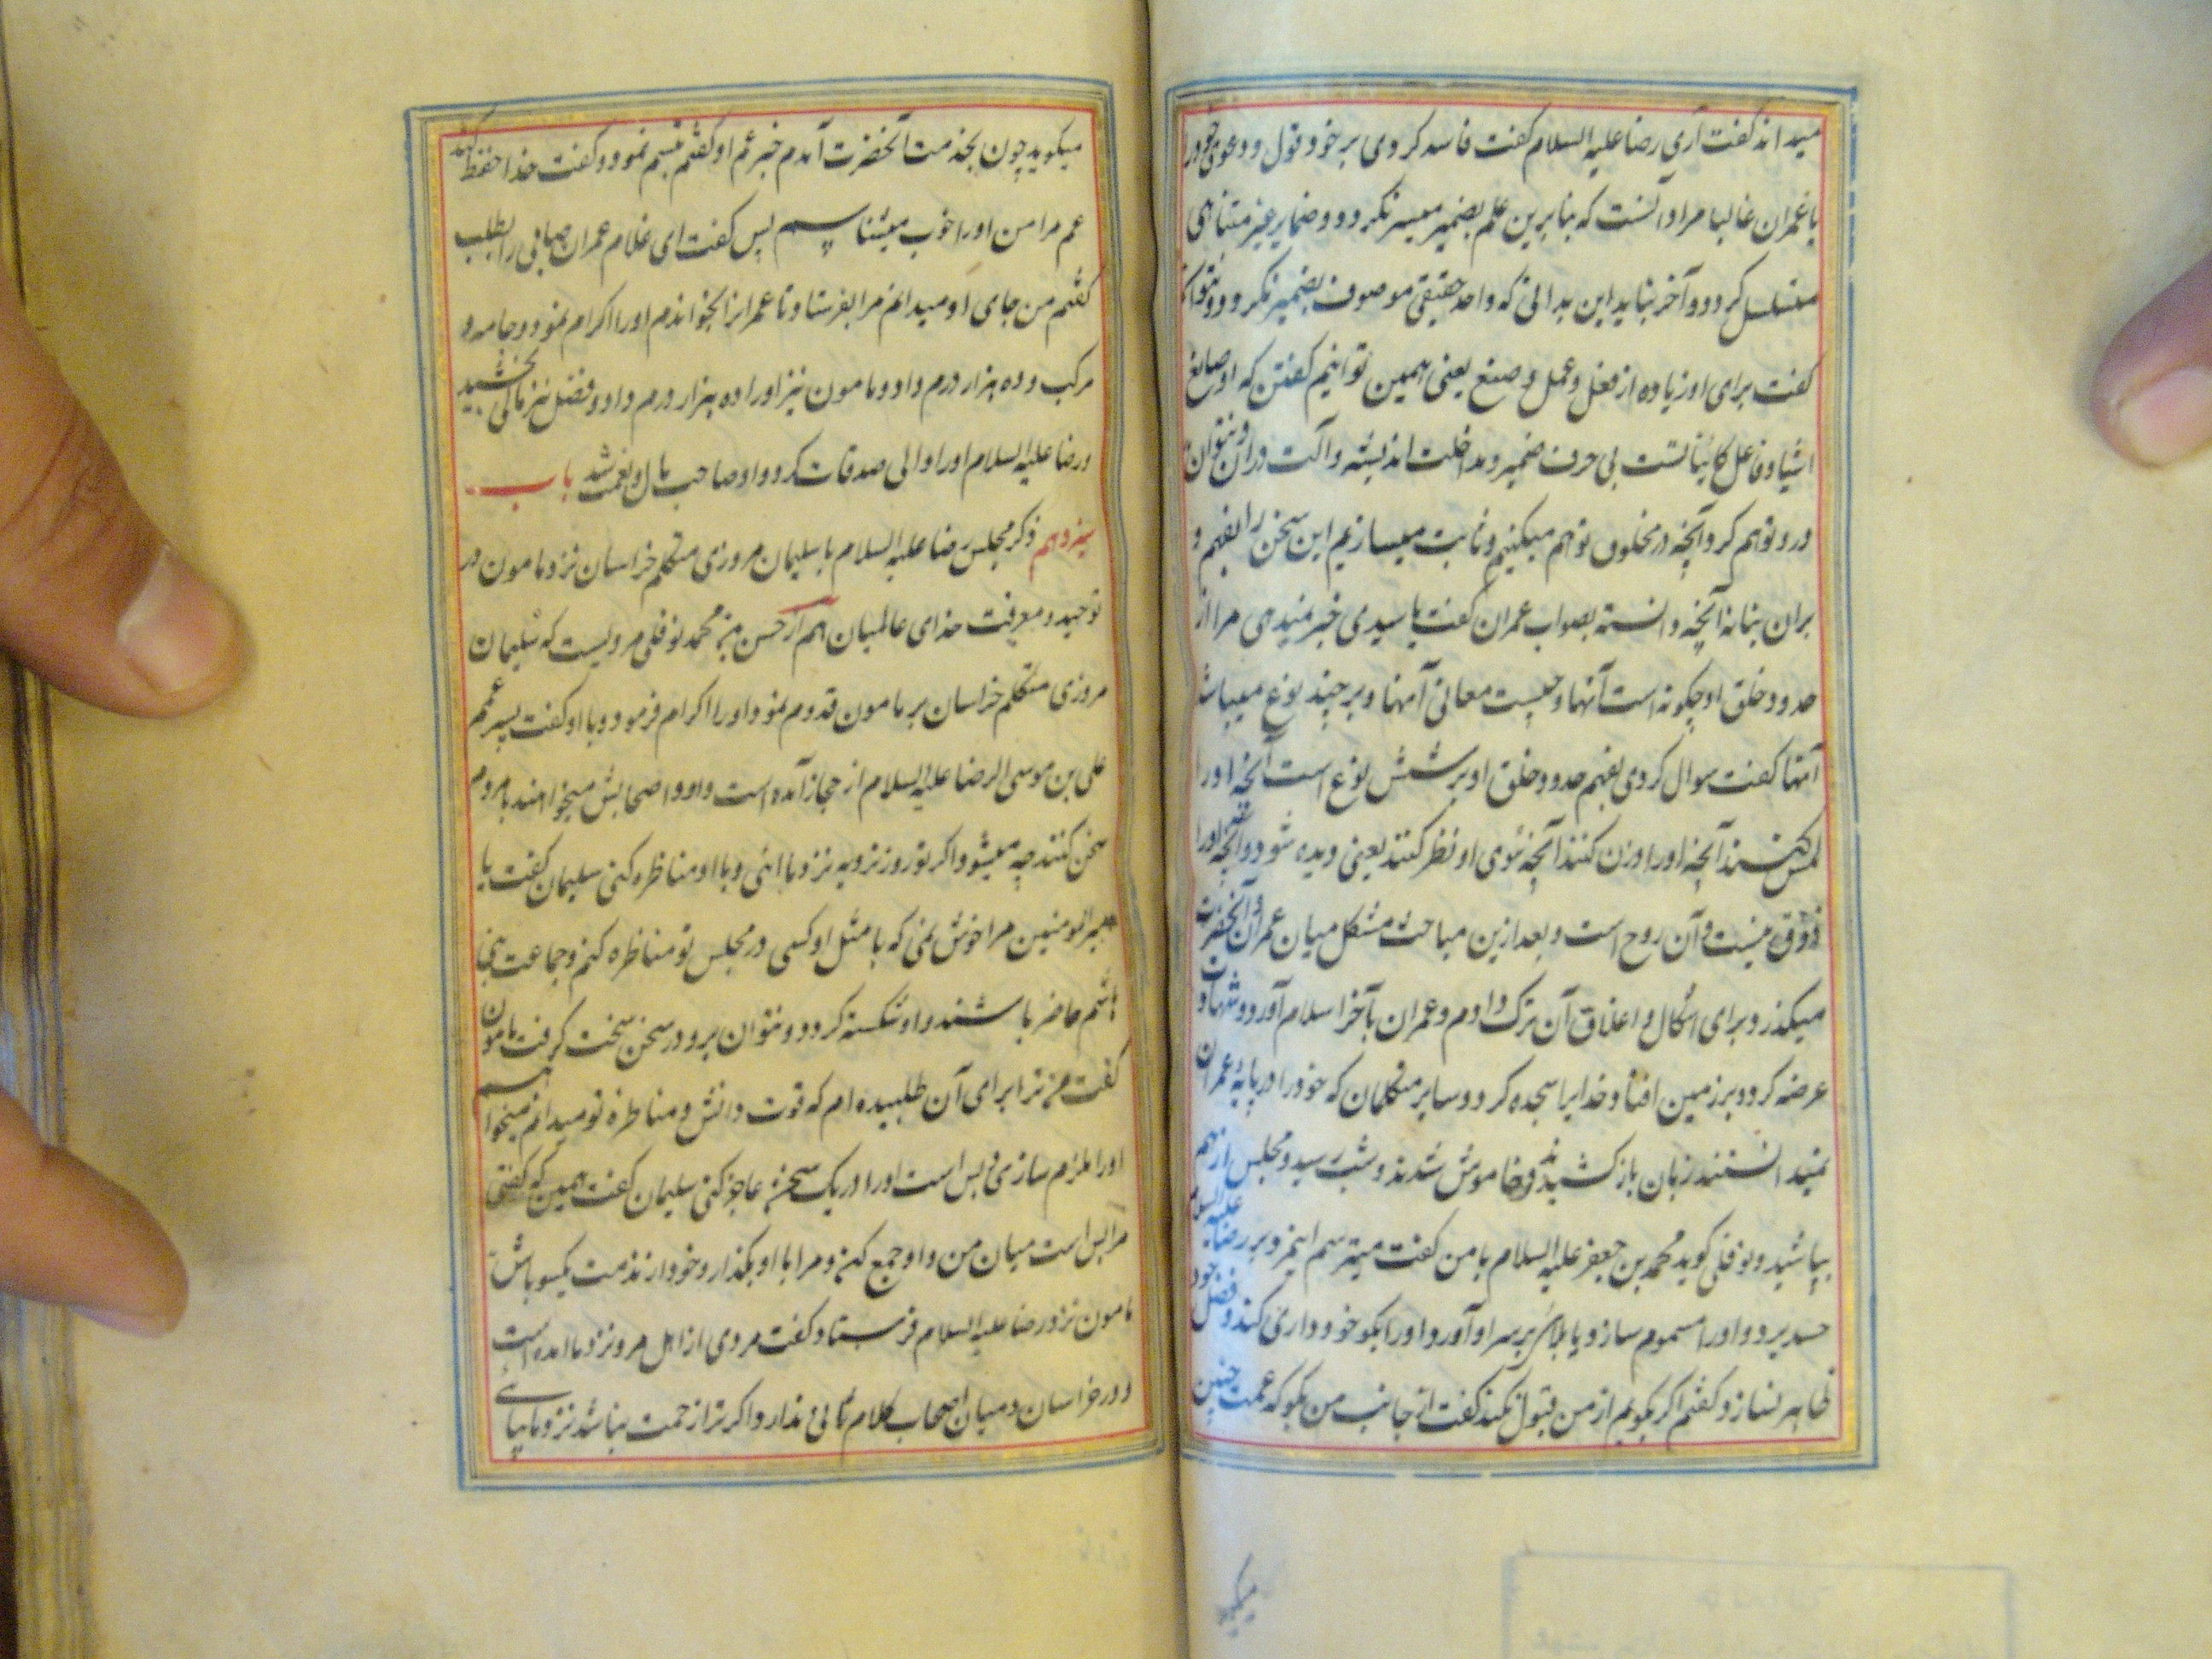 میداند گفت آری رضا علیه السلام گفت فاسد کردی بر خود قول و دعوی خود را
یا عمران غالبا مراد آنست که بنا برین علم بضمیر میسر نگردد و ضمایر غیر متناهی
متسلسل گردد و آخر نباید این بدانی که واحد حقیقی موصوف بضمیر نگردد و نتوان
گفت برای او زیاده از فعل و عمل و صنع یعنی همین توانیم گفتن که او صانع
اشیا و فاعل کاینانست بی حرف ضمیر و مداخلت اندیشه و آلت دران و نتوان
درو توهم کرد آنچه در مخلوق توهم میکنیم و ثابت میسازیم این سخن را بفهم و
بران بنا نه آنچه دانسته بصواب عمران گفت یا سیدی خبر نمیدهی مرا از
حدود خلق او چگونه است آنها و چیست معانی آنها و بر چند نوع میباشد
آنها گفت سوال کردی بفهم حدود خلق او بر شش نوع است آنچه او را
لمس کنند آنچه او را وزن کنند آنچه بسوی او نظر کنند یعنی دیده شود و آنچه او را
ذوق نیست و آن روح است و بعد ازین مباحث مشکل میان عمران و آنحضرت
میگذرد برای اشکال و اغلاق آن ترک دادم و عمران بآخر اسلام آورد و شهادت
عرضه کرد و بر زمین افتاد و خدایرا سجده کرد و سایر متکلمان که خود را در پایه عمران
نمیدانستند زبان باز کشیدند و خاموش شدند و شب رسید و مجلس از هم
بپاشید و نوفلی گوید محمد بن جعفر علیه السلام با من گفت میترسم اینمرد بر رضا علیه السلام
حسد برد و او را مسموم سازد یا بلائی بر سر او آورد او را بگو خود داری کند و فضل خود
ظاهر نسازد گفتم اگر بگویم از من قبول نکند گفت از جانب من بگو که عمت چنین
میگوید
میگوید چون بخدمت آنحضرت آمدم خبر عم او گفتم تبسم نمود و گفت خدا حفظ کند
عم مرا من او را خوب میشناسم پس گفت ای غلام عمران صابی را بطلب
گفتم من جای او میدانم مرا بفرستاد تا عمرانرا بخواندم او را اکرام نمود و جامه و
مرکب و ده هزار درم داد و مامون نیز او را ده هزار درم داد و فضل نیز مالی بخشید
و رضا علیه السلام او را والی صدقات کرد و او صاحب مال و نعمت شد باب
سیزدهم ذکر مجلس رضا علیه السلام با سلیمان مروزی متکلم خراسان نزد مامون در
توحید و معرفت خدای عالمیان هم از حسن بن محمد نوفلی مرویست که سلیمان
مروزی متکلم خراسان بر مامون قدوم نمود او را اکرام فرمود و با او گفت پسر عمم
علی بن موسی الرضا علیه السلام از حجاز آمده است و او و اصحابش میخواهند با مردم
سخن کنند چه میشود اگر تو روز ترویه نزد ما آئی و با او مناظره کنی سلیمان گفت یا
امیر المومنین مرا خوش نمی که با مثل او کسی در مجلس تو مناظره کنم و جماعت بنی
هاشم حاضر باشند و او شکسته گردد و نتوان برو در سخن سخت گرفت مامون
گفت من ترا برای آن طلبیده ام که قوت دانش و مناظره تو میدانم میخواهم
او را ملزم سازی و بس است او را در یک سخن عاجز کنی سلیمان گفت همین که گفتی
مرا بس است میان من و او جمع کن و مرا با او بگذار و خود از مذمت یکسو باش
مامون نزد رضا علیه السلام فرستاد و گفت مردی از اهل مرو نزد ما آمده است
و در خراسان و میان اصحاب کلام ثانی ندارد اگر ترا زحمت نباشد نزد ما بیائی